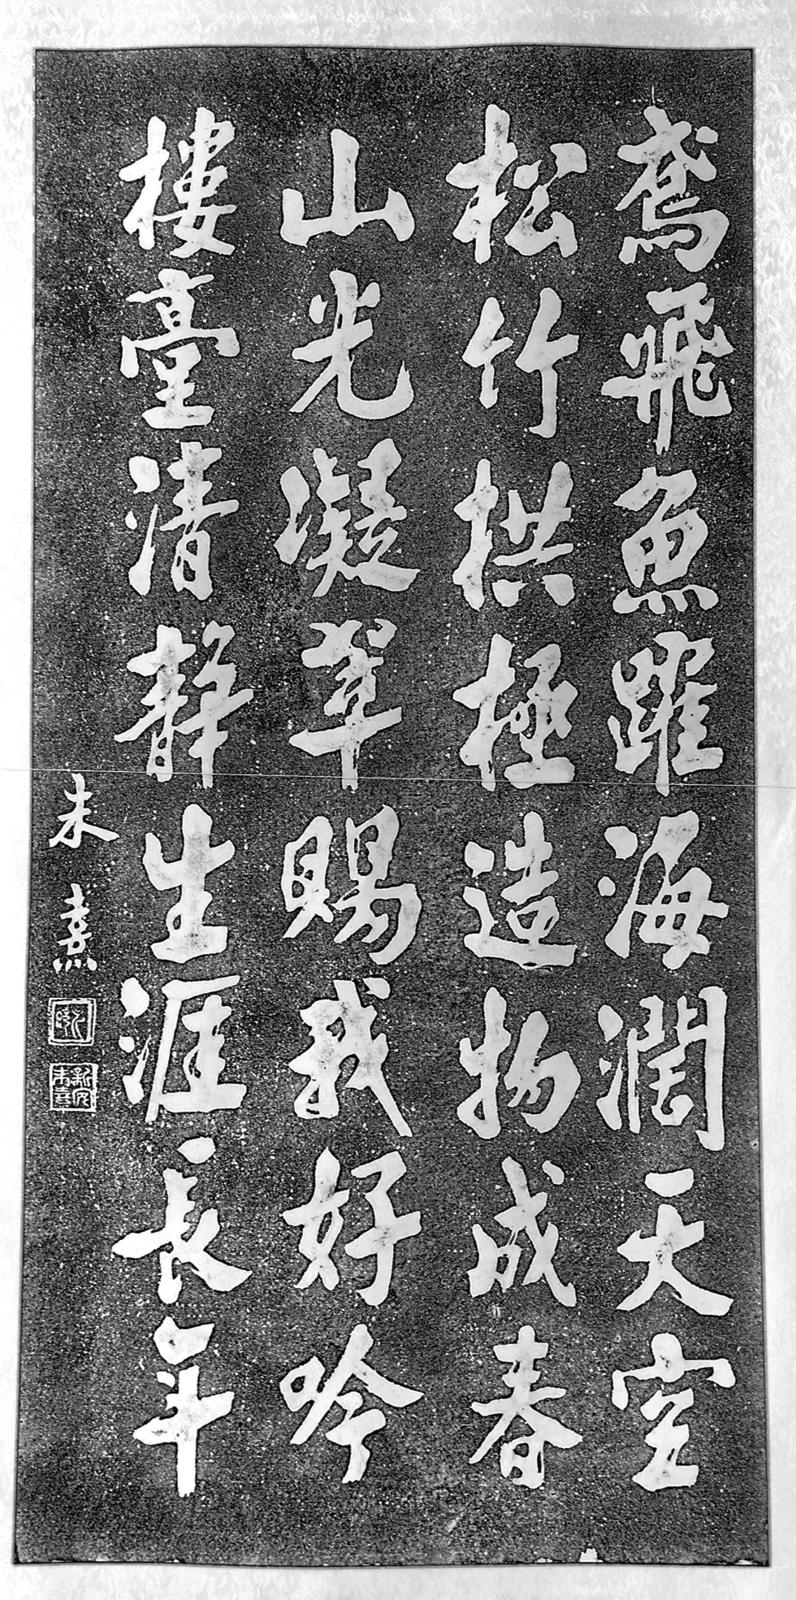 鳶飛魚躍海濶天空
松竹拱極造物成春
山光凝萃賜我好吟
樓臺清靜生涯長年
朱熹
新安朱熹